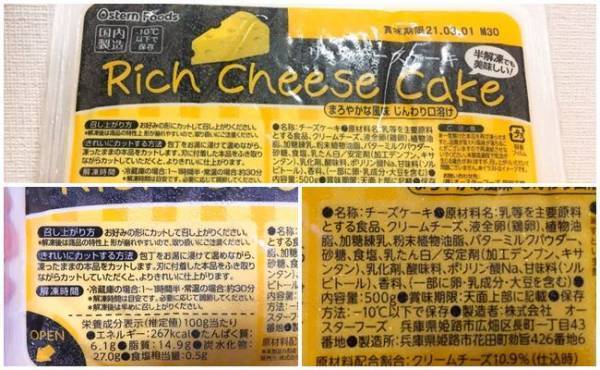 Ostern Foods
賞味期限21.03.01 M30
国内
製造
-10℃
以下で
保存
チーズケーキ
半解凍でも
美味しい!
Rich Cheese Cake
まろやかな風味 じんわり口溶け
召し上がり方 お好みの形にカットして召し上がりください。
※解凍後は商品の特性上 形が崩れやすいので、取り扱いにご注意ください。
きれいにカットする方法 包丁をお湯に浸けて温めながら、
凍ったままの本品をカットします。刃に付着した本品をふき取り
ながらカットしていただくと、よりきれいに仕上がります。
解凍時間 ・冷蔵庫の場合:1~1時間半・常温の場合:約30分
※解凍時間は目安です。必要に応じて調節してください。
●名称:チーズケーキ●原材料名:乳等を主要原料
とする食品、クリームチーズ、液全卵(鶏卵)、植物油
脂、加糖練乳、粉末植物油脂、バターミルクパウダー、
砂糖、食塩、乳たん白/安定剤(加工デンプン、キサ
ンタン)、乳化剤、酸味料、ポリリン酸Na、甘味料(ソル
ビトール)、香料、(一部に卵・乳成分・大豆を含む)
内容量:500g
召し上がり方 お好みの形にカットして召し上がりください。
※解凍後は商品の特性上 形が崩れやすいので、取り扱いにご注意ください。
きれいにカットする方法 包丁をお湯に浸けて温めながら、
凍ったままの本品をカットします。刃に付着した本品をふき取り
ながらカットしていただくと、よりきれいに仕上がります。
解凍時間 ・冷蔵庫の場合:1~1時間半・常温の場合:約30分
※解凍時間は目安です。必要に応じて調節してください。
※解凍後は早めに召し上がりください。
栄養成分表示(推定値)100g当たり
●エネルギー:267kcal●たんぱく質:
6.1g●脂質:14.9g●炭水化物:
27.0g●食塩相当量:0.5g
OPEN
●名称:チーズケーキ●原材料名:乳等を主要原料
とする食品、クリームチーズ、液全卵(鶏卵)、植物油
脂、加糖練乳、粉末植物油脂、バターミルクパウダー、
砂糖、食塩、乳たん白/安定剤(加工デンプン、キ
サンタン)、乳化剤、酸味料、ポリリン酸Na、甘味料(ソル
ビトール)、香料、(一部に卵・乳成分・大豆を含む)●
内容量:500g●賞味期限:天面上部に記載●保存
方法:-10℃以下で保存●製造者:株式会社 オ
スターフーズ 兵庫県姫路市広畑区長町一丁目43
番地●製造所:兵庫県姫路市花田町勅旨426番地6
原材料配合割合:クリームチーズ10.9%(仕込時)